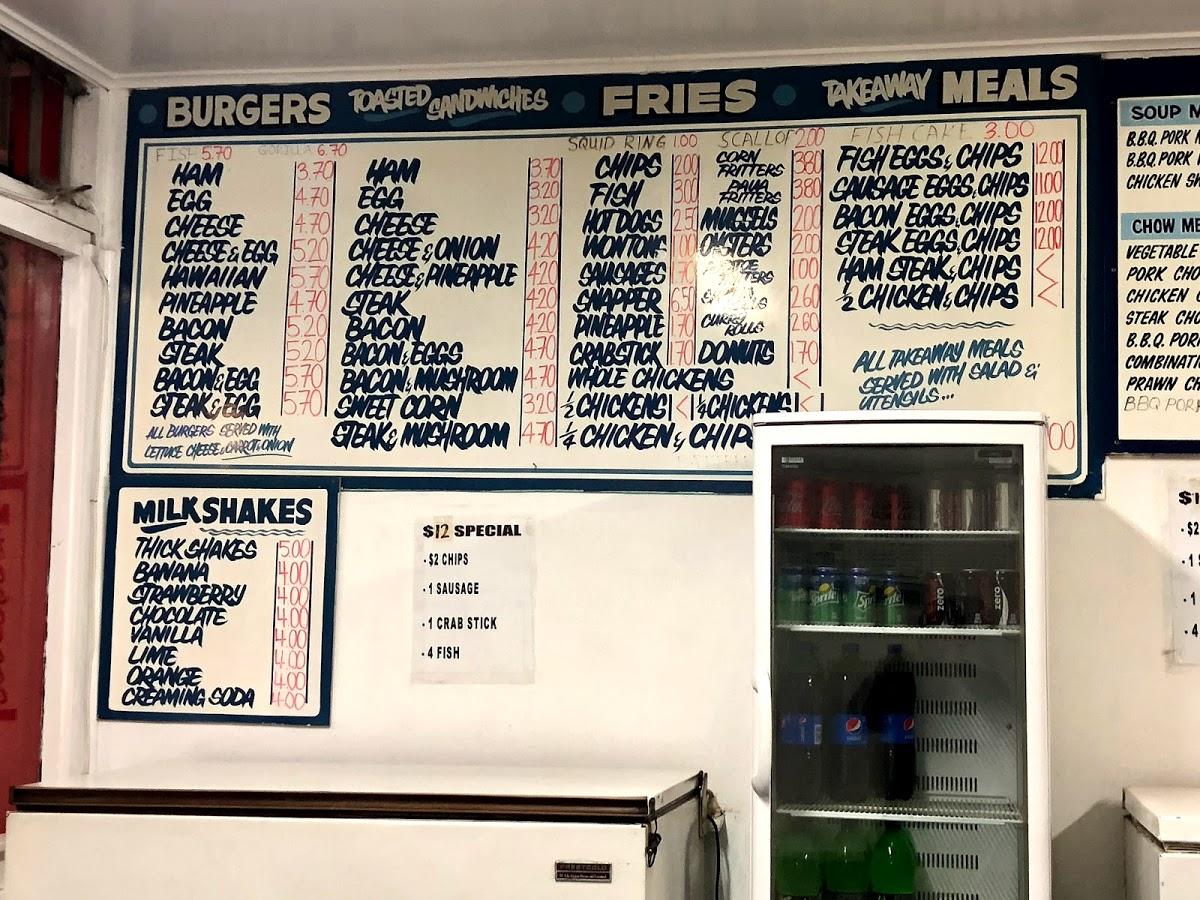 BURGERS TOASTED SANDWICHES FRIES TAKEAWAY MEALS
FISH 5.70 GORILLA 6.70
HAM 3.70
EGG 4.70
CHEESE 4.70
CHEESE & EGG 5.20
HAWAIIAN 5.70
PINEAPPLE 4.70
BACON 5.20
STEAK 5.20
BACON & EGG 5.70
STEAK & EGG 5.70
ALL BURGERS SERVED WITH
LETTUCE CHEESE & CARROT & ONION
HAM 3.70
EGG 3.20
CHEESE 3.20
CHEESE & ONION 4.20
CHEESE & PINEAPPLE 4.20
STEAK 4.20
BACON 4.20
BACON & EGGS 4.70
BACON & MUSHROOM 4.70
SWEET CORN 3.20
STEAK & MUSHROOM 4.70
SQUID RING 1.00 SCALLOP 2.00
CHIPS 2.00
FISH 3.00
HOT DOGS 2.50
WONTONS 1.00
SAUSAGES 1.70
SNAPPER 6.50
PINEAPPLE 1.70
CRABSTICK 1.70
WHOLE CHICKENS <
1/2 CHICKENS < 1/4 CHICKENS <
1/4 CHICKEN & CHIPS
CORN FRITTERS 3.80
PAUA FRITTERS 3.80
MUSSELS 2.00
OYSTERS 2.00
1.00
2.60
CURRY ROLLS 2.60
DONUTS 1.70
FISH CAKE 3.00
FISH EGGS & CHIPS 12.00
SAUSAGE EGGS & CHIPS 11.00
BACON EGGS & CHIPS 12.00
STEAK EGGS & CHIPS 12.00
HAM STEAK & CHIPS <
1/2 CHICKEN & CHIPS <
ALL TAKEAWAY MEALS
SERVED WITH SALAD &
UTENSILS...
00
SOUP M
B.B.Q. PORK
B.B.Q. PORK
CHICKEN
CHOW ME
VEGETABLE
PORK CHO
CHICKEN
STEAK CHO
B.B.Q. POR
COMBINATI
PRAWN CH
BBQ PORK
MILK SHAKES
THICK SHAKES 5.00
BANANA 4.00
STRAWBERRY 4.00
CHOCOLATE 4.00
VANILLA 4.00
LIME 4.00
ORANGE 4.00
CREAMING SODA 4.00
$12 SPECIAL
- $2 CHIPS
- 1 SAUSAGE
- 1 CRAB STICK
- 4 FISH
Sprite
zero
zero
$1
- $2
- 1
- 1
- 4